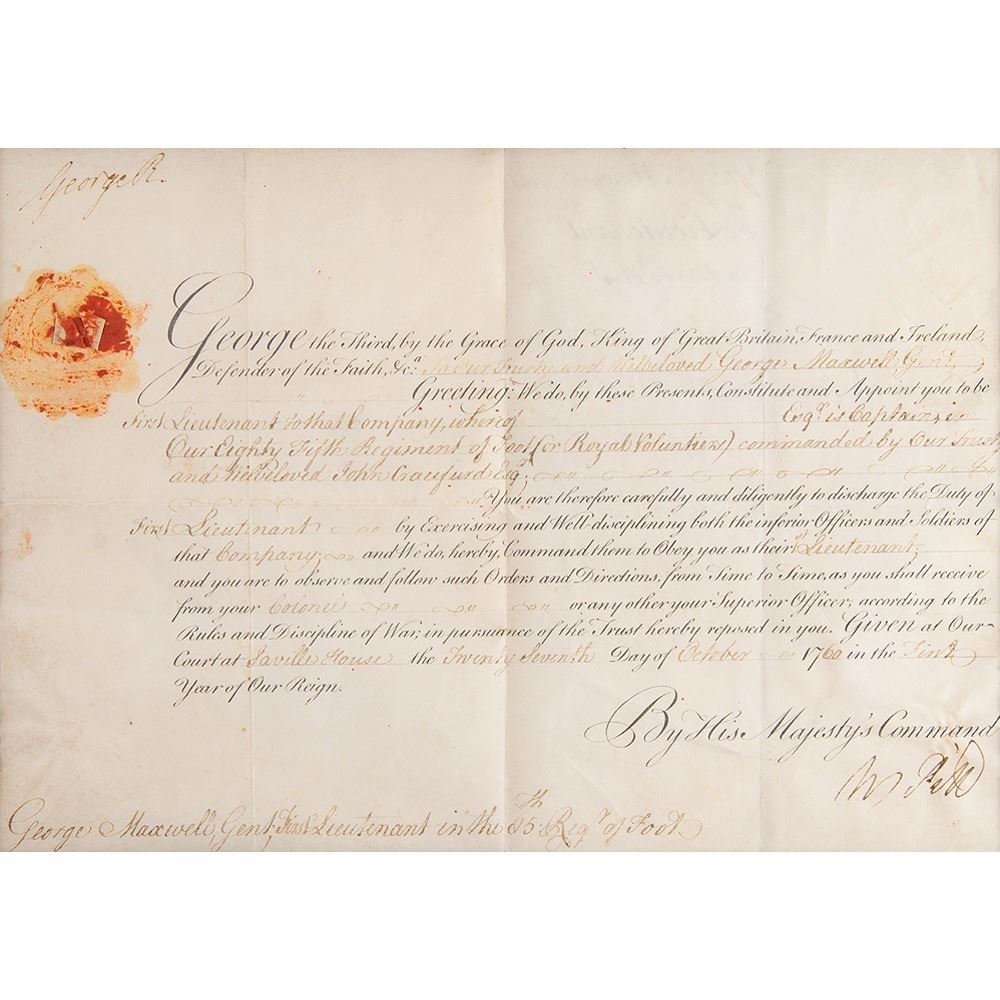 George R.
George the Third, by the Grace of God, King of Great Britain, France and Ireland,
Defender of the Faith, &c.a To Our Trusty and Welbeloved George Maxwell, Gent.
Greeting: We do, by these Presents, Constitute and Appoint you to be
First Lieutenant to that Company, whereof Esqr. is Captain, in
Our Eighty Fifth Regiment of Foot (or Royal Voluntiers) commanded by Our Trusty
and Welbeloved John Craufurd Esqr.
You are therefore carefully and diligently to discharge the Duty of
First Lieutenant by Exercising and Well disciplining both the inferior Officers and Soldiers of
that Company, and We do, hereby, Command them to Obey you as their 1st Lieutenant,
and you are to observe and follow such Orders and Directions, from Time to Time, as you shall receive
from your Colonel or any other your Superior Officer, according to the
Rules and Discipline of War, in pursuance of the Trust hereby reposed in you. Given at Our
Court at Saville House the Twenty Seventh Day of October 1760 in the First
Year of Our Reign.
By His Majesty's Command
W Pitt
George Maxwell, Gent, First Lieutenant in the 85th Regt. of Foot.